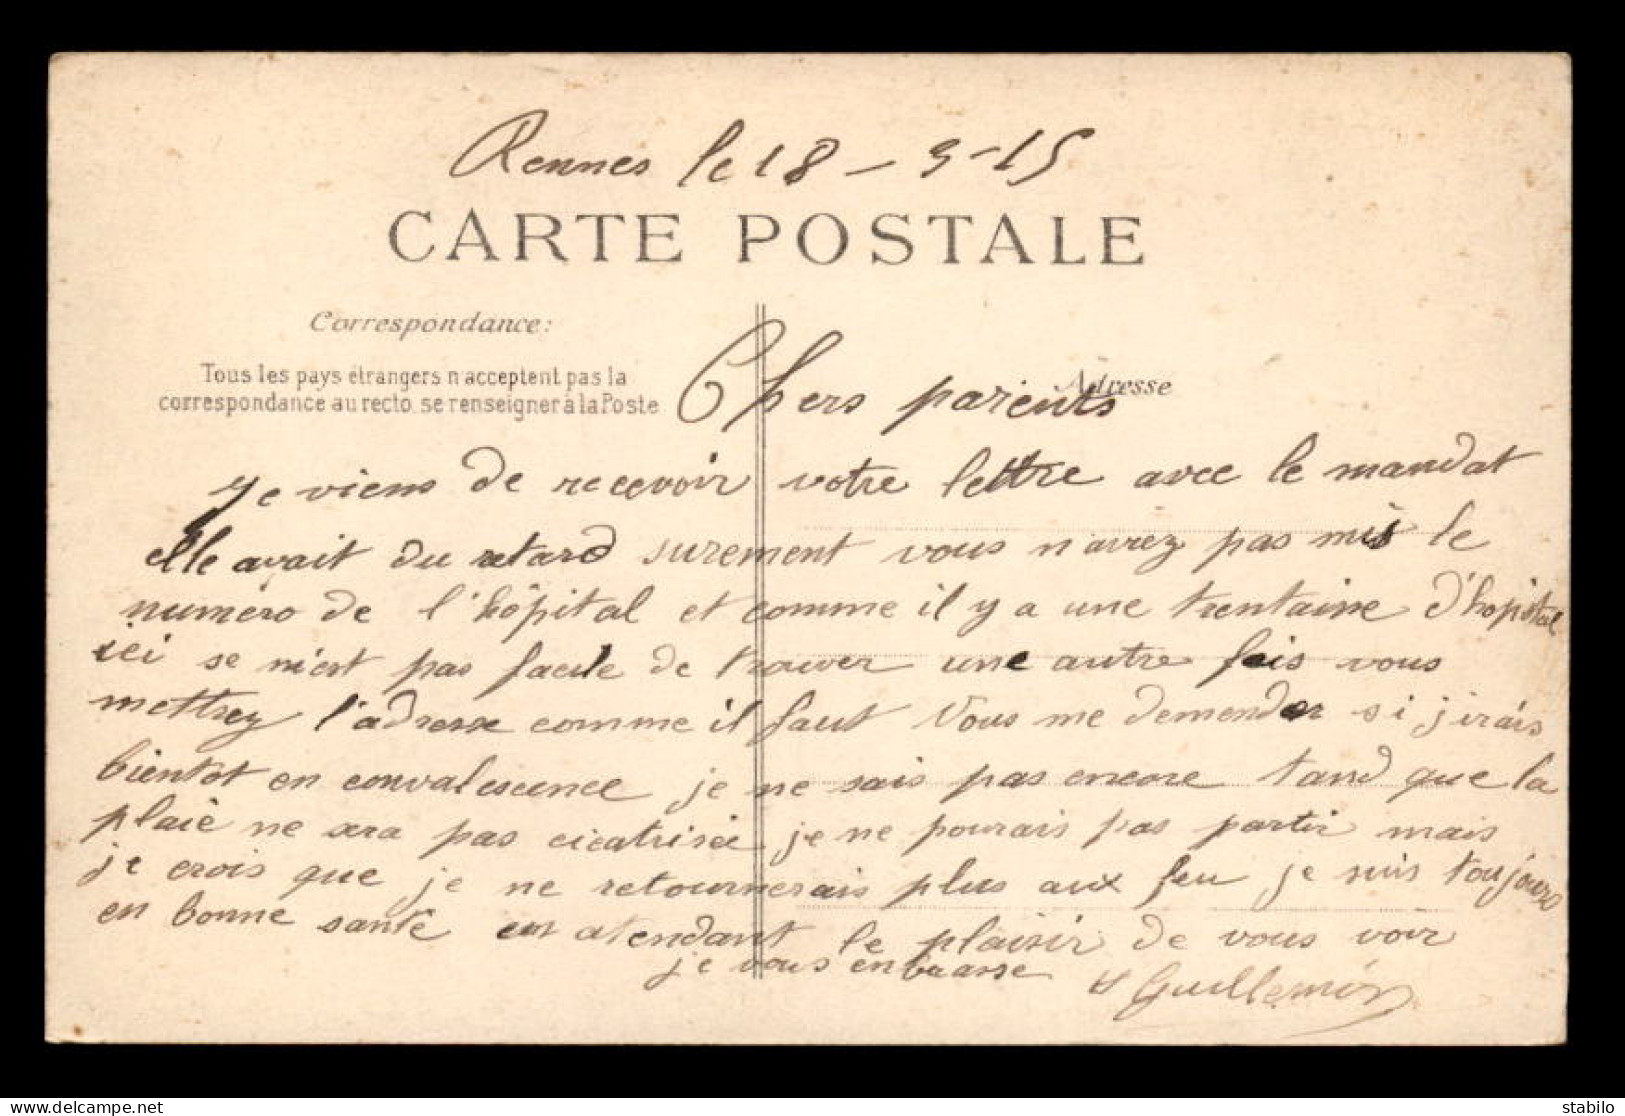 Rennes le 18 - 3-15
CARTE POSTALE
Correspondance:
Tous les pays étrangers n'acceptent pas la
correspondance au recto. se renseigner à la Poste
Adresse
Chers parents
Je viens de recevoir votre lettre avec le mandat
elle avait du retard surement vous n'aviez pas mis le
numéro de l'hôpital et comme il y a une trentaine d'hopital
ici se n'est pas facile de trouver une autre fois vous
mettrez l'adresse comme il faut Vous me demender si j'irais
bientot en convalescence je ne sais pas encore tand que la
plaie ne sera pas cicatrisée je ne pourais pas partir mais
je crois que je ne retournerais plus aux feu je suis toujours
en bonne santé en atendant le plaisir de vous voir
je vous enbrasse
Guillemin
stabilo